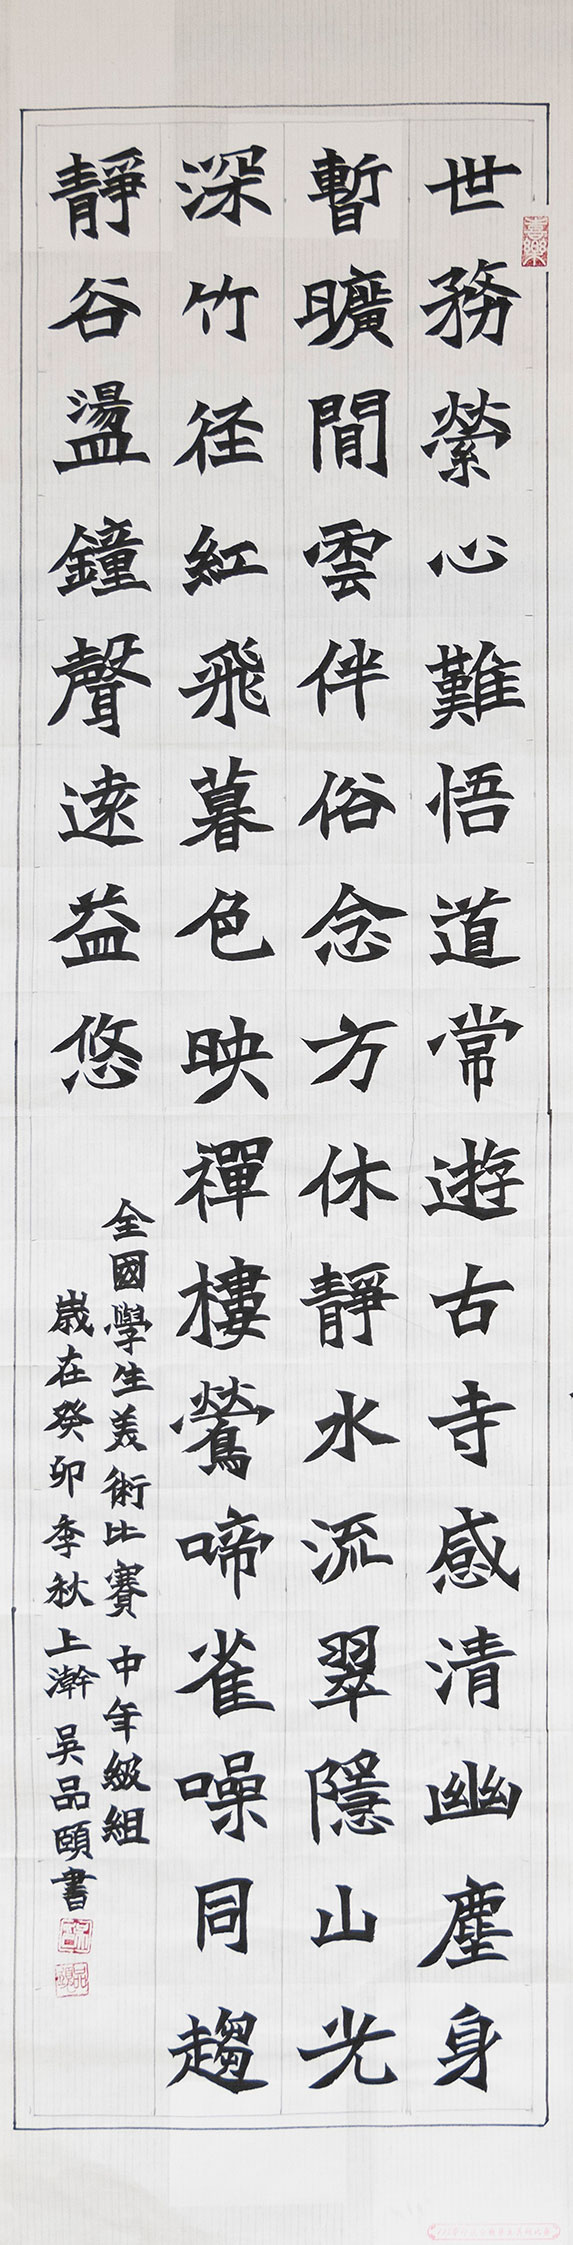 世務縈心難悟道常遊古寺感清幽塵身
暫曠閒雲伴俗念方休靜水流翠隱山光
深竹径紅飛暮色映禪樓鶯啼雀噪同趨
靜谷盪鐘聲遠益悠
全國學生美術比賽 中年級組
歲在癸卯季秋上澣 吳品頤書
喜樂